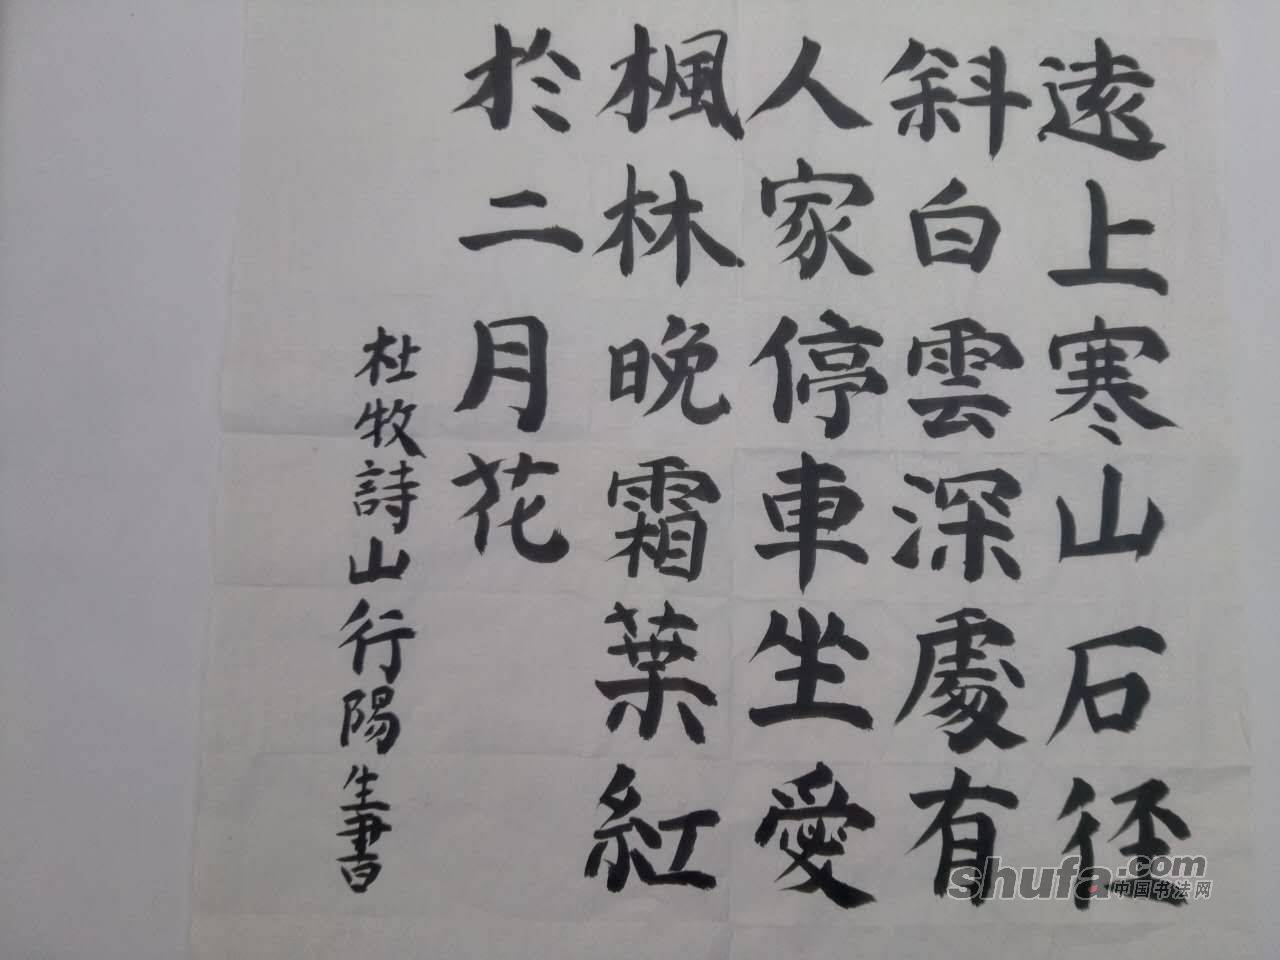 遠上寒山石径
斜白雲深處有
人家停車坐愛
楓林晚霜葉紅
於二月花
杜牧詩山行陽生書
shufa.com
中国书法网